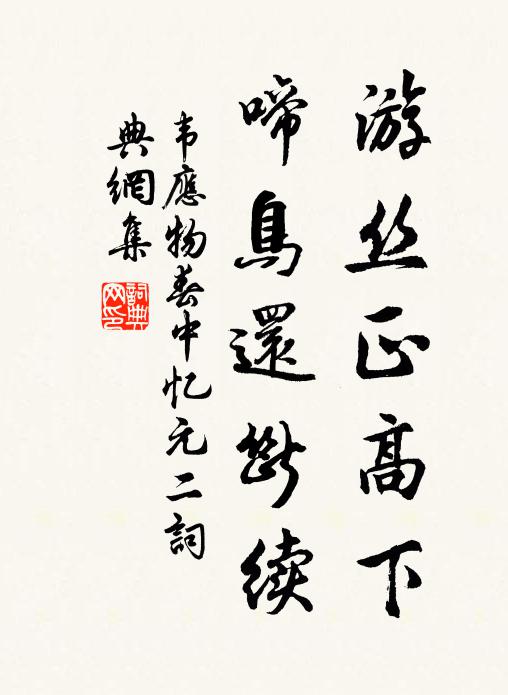 游丝正高下
啼鳥還斷续
韦應物春中忆元二詞
典網集
詞典
网印